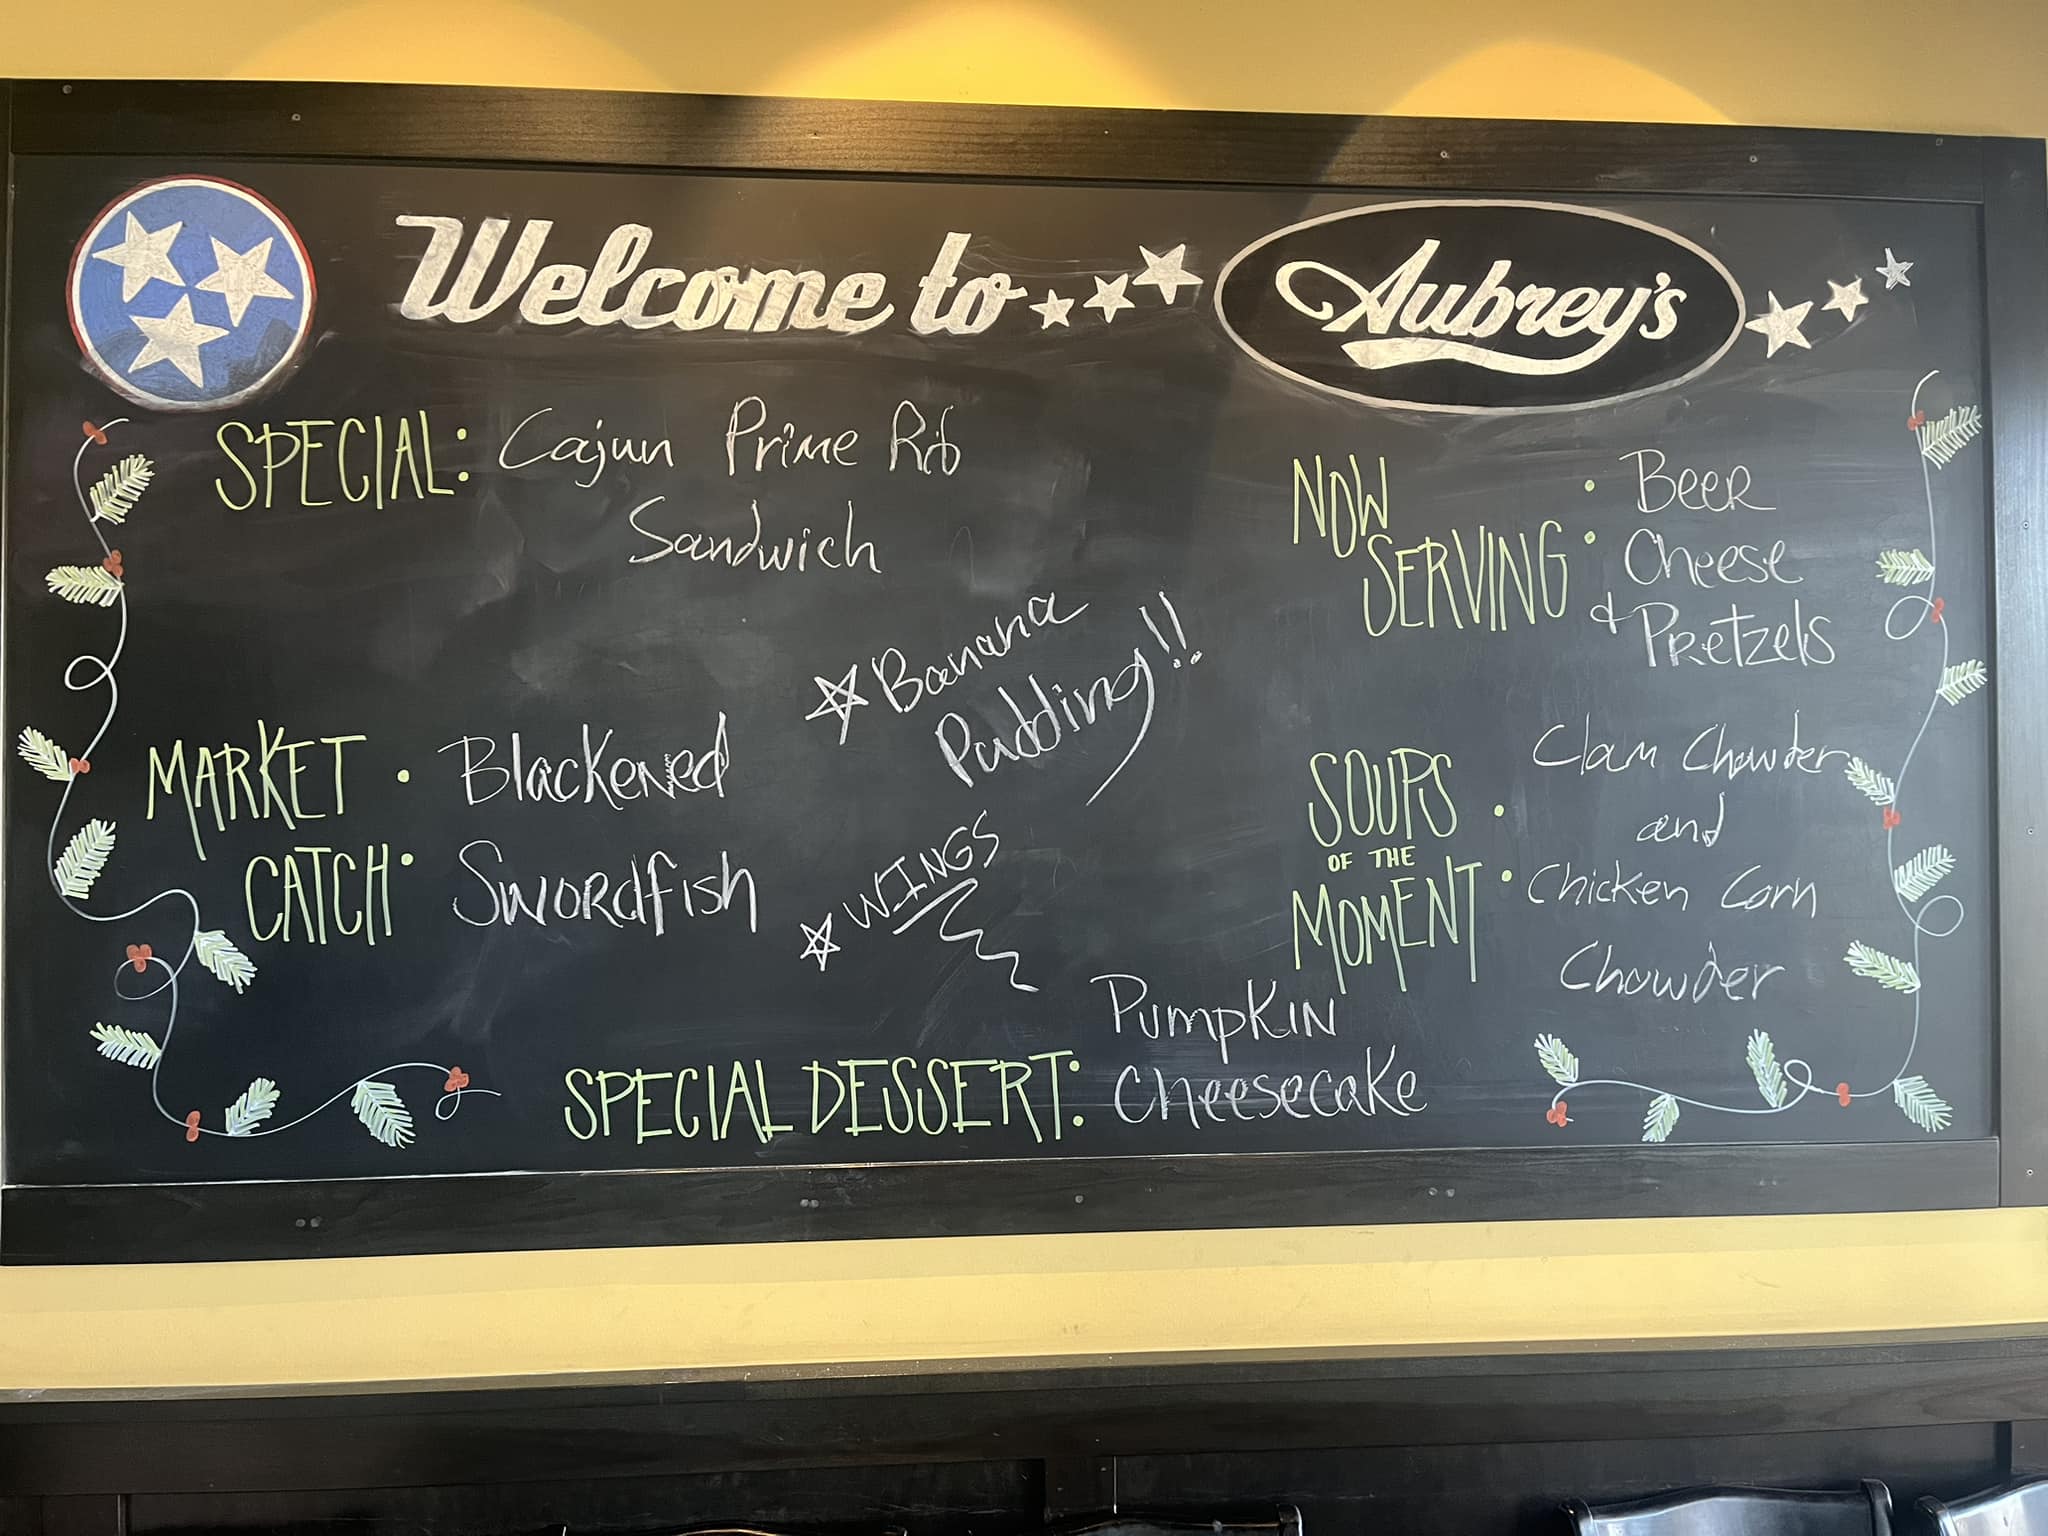 Welcome to Aubrey's
SPECIAL: Cajun Prime Rib
Sandwich
NOW
SERVING: Beer
Cheese
& Pretzels
☆ Banana
Pudding!!
MARKET
CATCH: Blackened
Swordfish
☆ WINGS
SOUPS
OF THE
MOMENT: Clam Chowder
and
Chicken Corn
Chowder
SPECIAL DESSERT: Pumpkin
Cheesecake